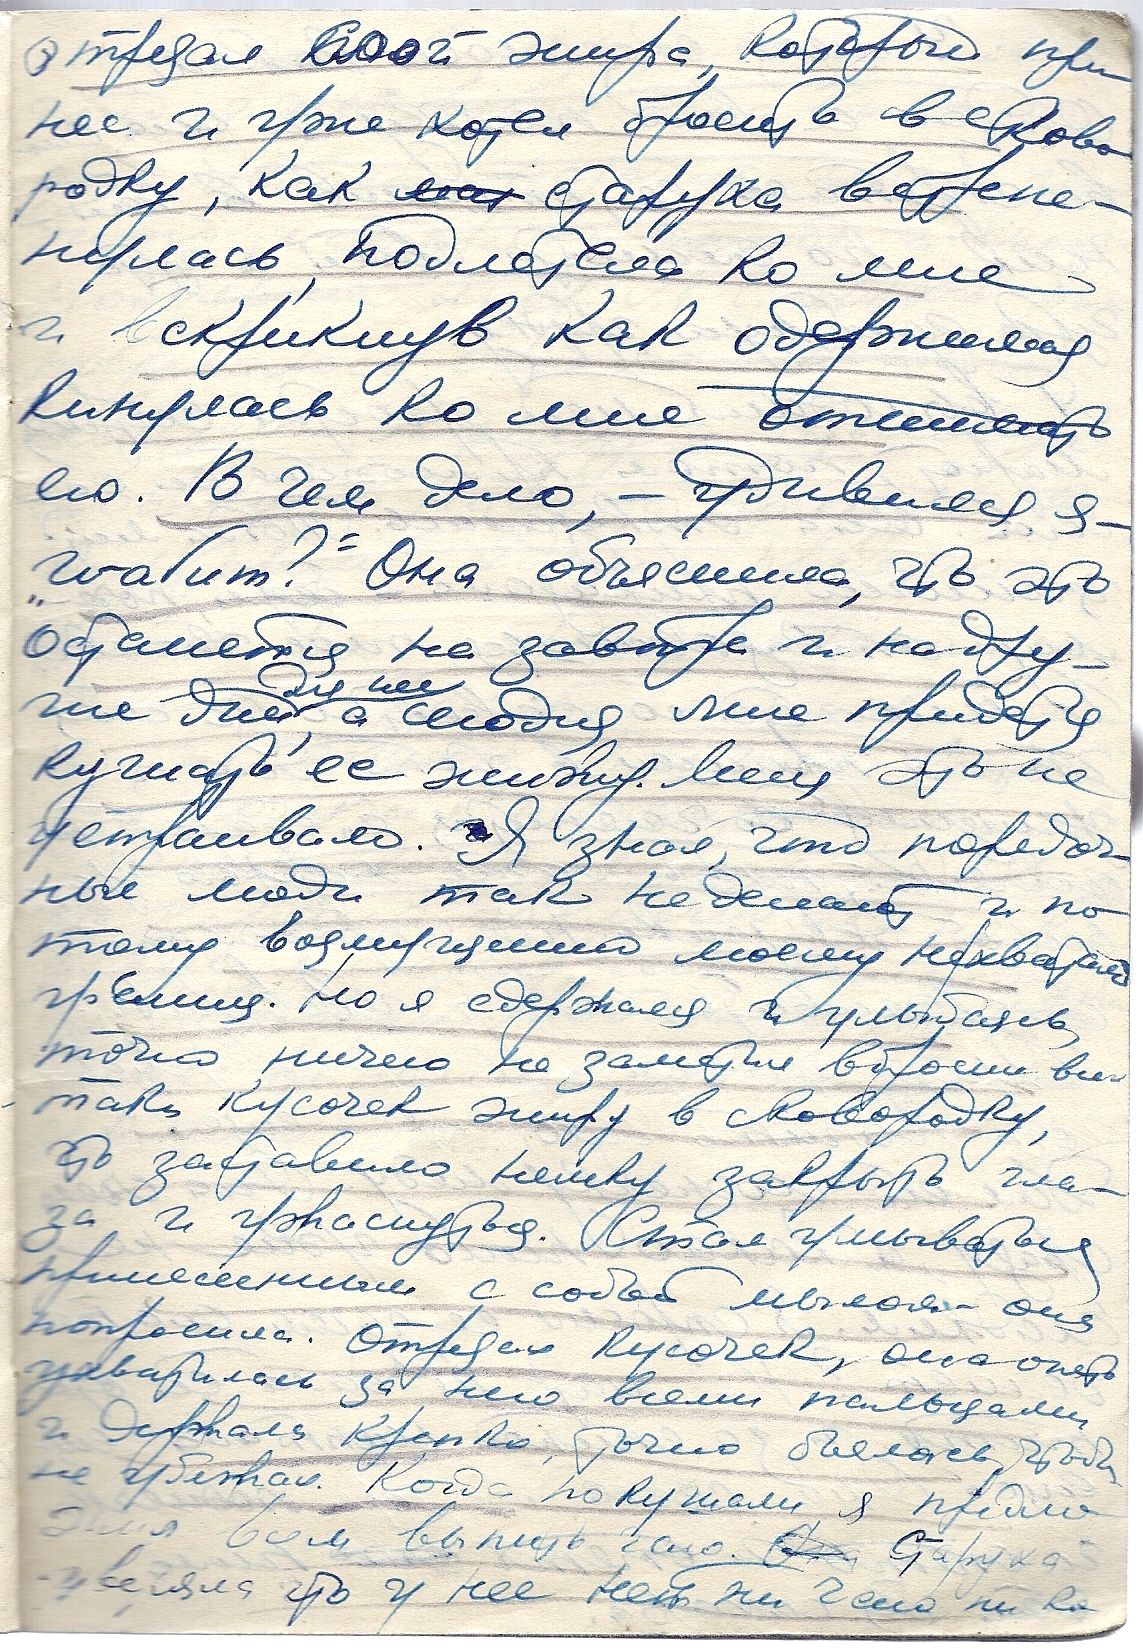 отрезал слой жира, который при-
нес и уже хотел бросить в сково-
родку, как старуха встрепе-
нулась, подлетела ко мне
и вскрикнув как одержимая
кинулась ко мне отнимать
его. В чем дело, – удивился я –
гwабит?" Она объяснила, что это
останется на завтра и на дру-
гие дни для нее, а сегодня мне придется
кушать ее жижу. Меня это не
устраивало. Я знал, что порядоч-
ные люди так не делают и по-
тому возмущению моему не хватало
границ. Но я сдержался и улыбаясь,
точно ничего не заметил вбросил все
таки кусочек жиру в сковородку,
что заставило немку закрыть гла-
за и ужаснуться. Стал умываться
принесенным с собой мылом – она
попросила. Отрезал кусочек, она опять
ухватилась за него всеми пальцами
и держала крепко, точно боялась, чтобы
не убежал. Когда покушали, я предло-
жил всем выпить чаю. Старуха
уверяла что у нее нет ни чего ни ко